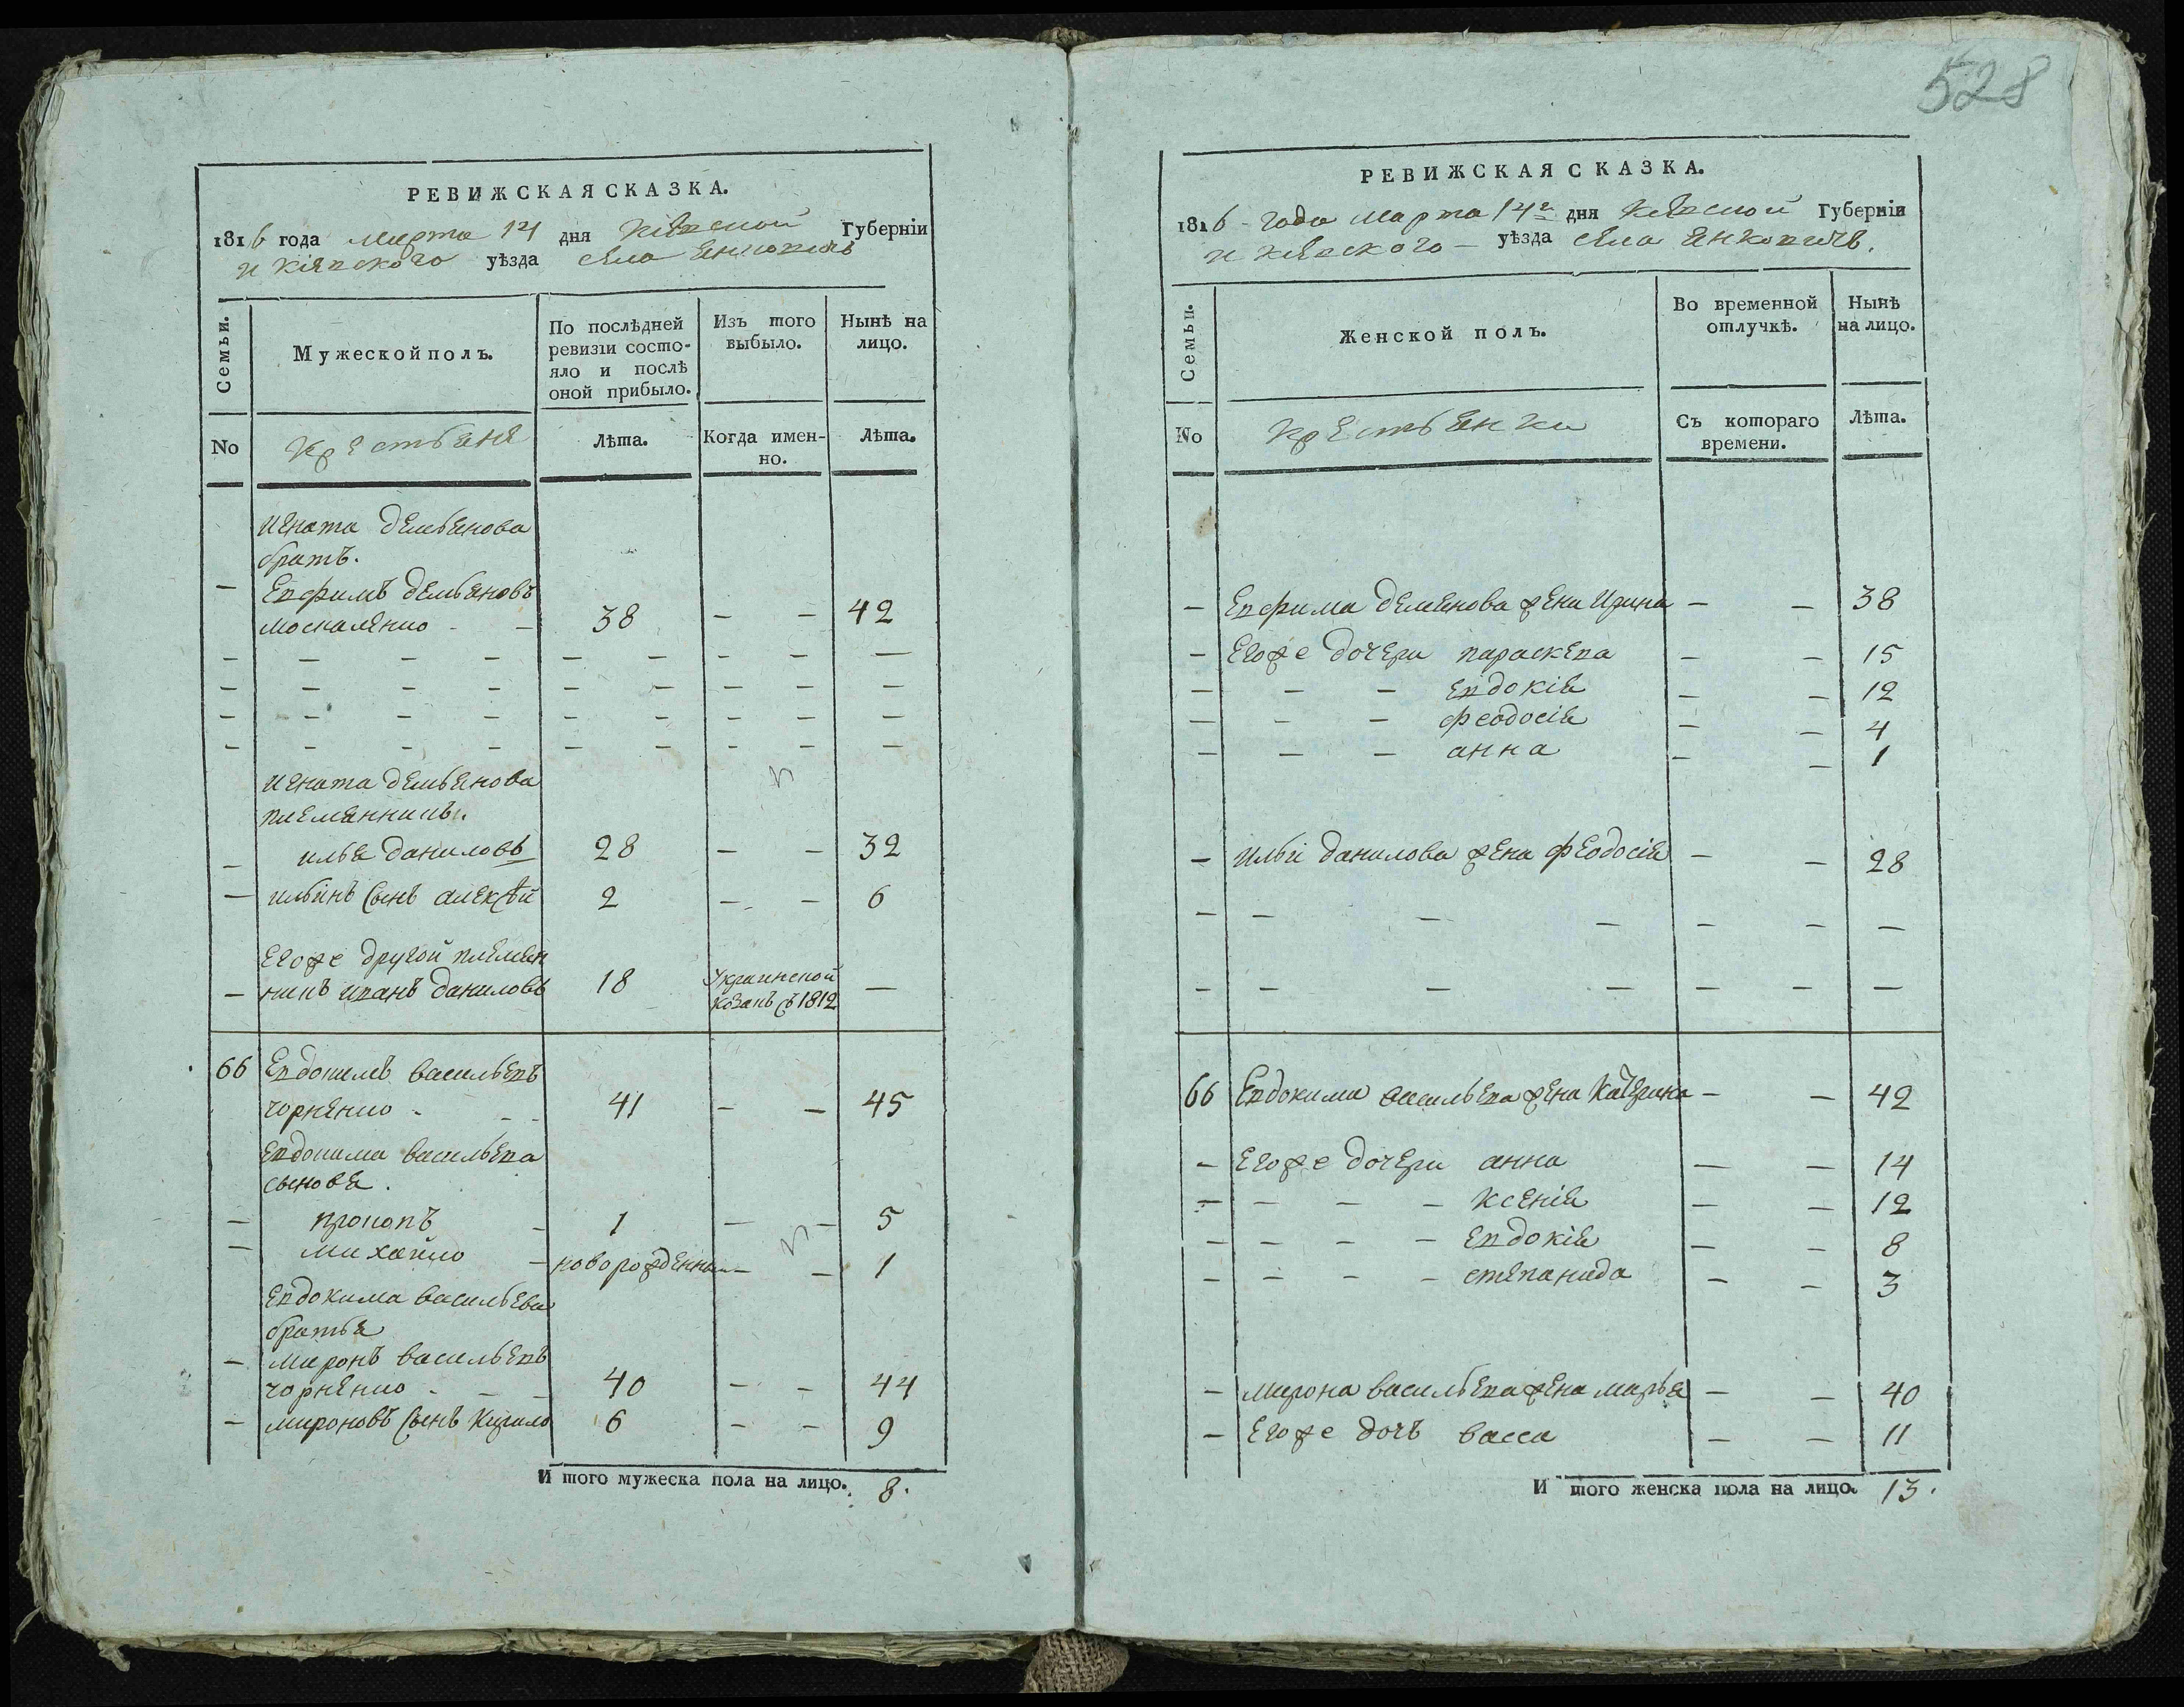 528
РЕВИЖСКАЯ СКАЗКА.
1816 года марта 14 дня Кіевской Губерніи
и Кіевского уѣзда села Янкович
Семьи. Мужеской полъ. По послѣдней ревизіи состояло и послѣ оной прибыло. Изъ того выбыло. Нынѣ на лицо.
No Крестьяне Лѣта. Когда именно. Лѣта.
Игната демьянова
братъ.
— Евфимъ демьяновъ
москаленко - - 38 — — 42
— — — — — — — — —
— — — — — — — — —
— — — — — — — — —
— — — — — — — — —
Игната демьянова
племянники.
— илья даниловъ 28 — — 32
— ильинъ сынъ алексѣй 2 — — 6
Егоже другой племян
— никъ иванъ даниловъ 18 Украинской —
козакъ съ 1812
66 Евдокимъ васильевъ
чорненко - - 41 — — 45
Евдокима васильева
сыновя.
— прокопъ - 1 — — 5
— михайло - новорожденны — — 1
Евдокима васильева
братья
— миронъ васильевъ
чорненко - - - 40 — — 44
— мироновъ сынъ Кирило 6 — — 9
И того мужеска пола на лицо. 8.
РЕВИЖСКАЯ СКАЗКА.
1816 - года марта 14го дня Кіевской Губерніи
и Кіевского — уѣзда села Янковичъ.
Семьи. Женской полъ. Во временной отлучкѣ. Нынѣ на лицо.
No Крестьянки Съ котораго времени. Лѣта.
— Евфима демянова жена Ирина — — 38
— Егоже дочери параскева — — 15
— — — евдокія — — 12
— — — феодосія — — 4
— — — анна — — 1
— ильи данилова жена феодосія — — 28
— — — — — — —
— — — — — — —
66 Евдокима васильева жена Катерина — — 42
— Егоже дочери анна — — 14
— — — — Ксенія — — 12
— — — — евдокія — — 8
— — — — степанида — — 3
— мирона васильева жена марья — — 40
— Егоже дочь васса — — 11
И того женска пола на лицо. 13.